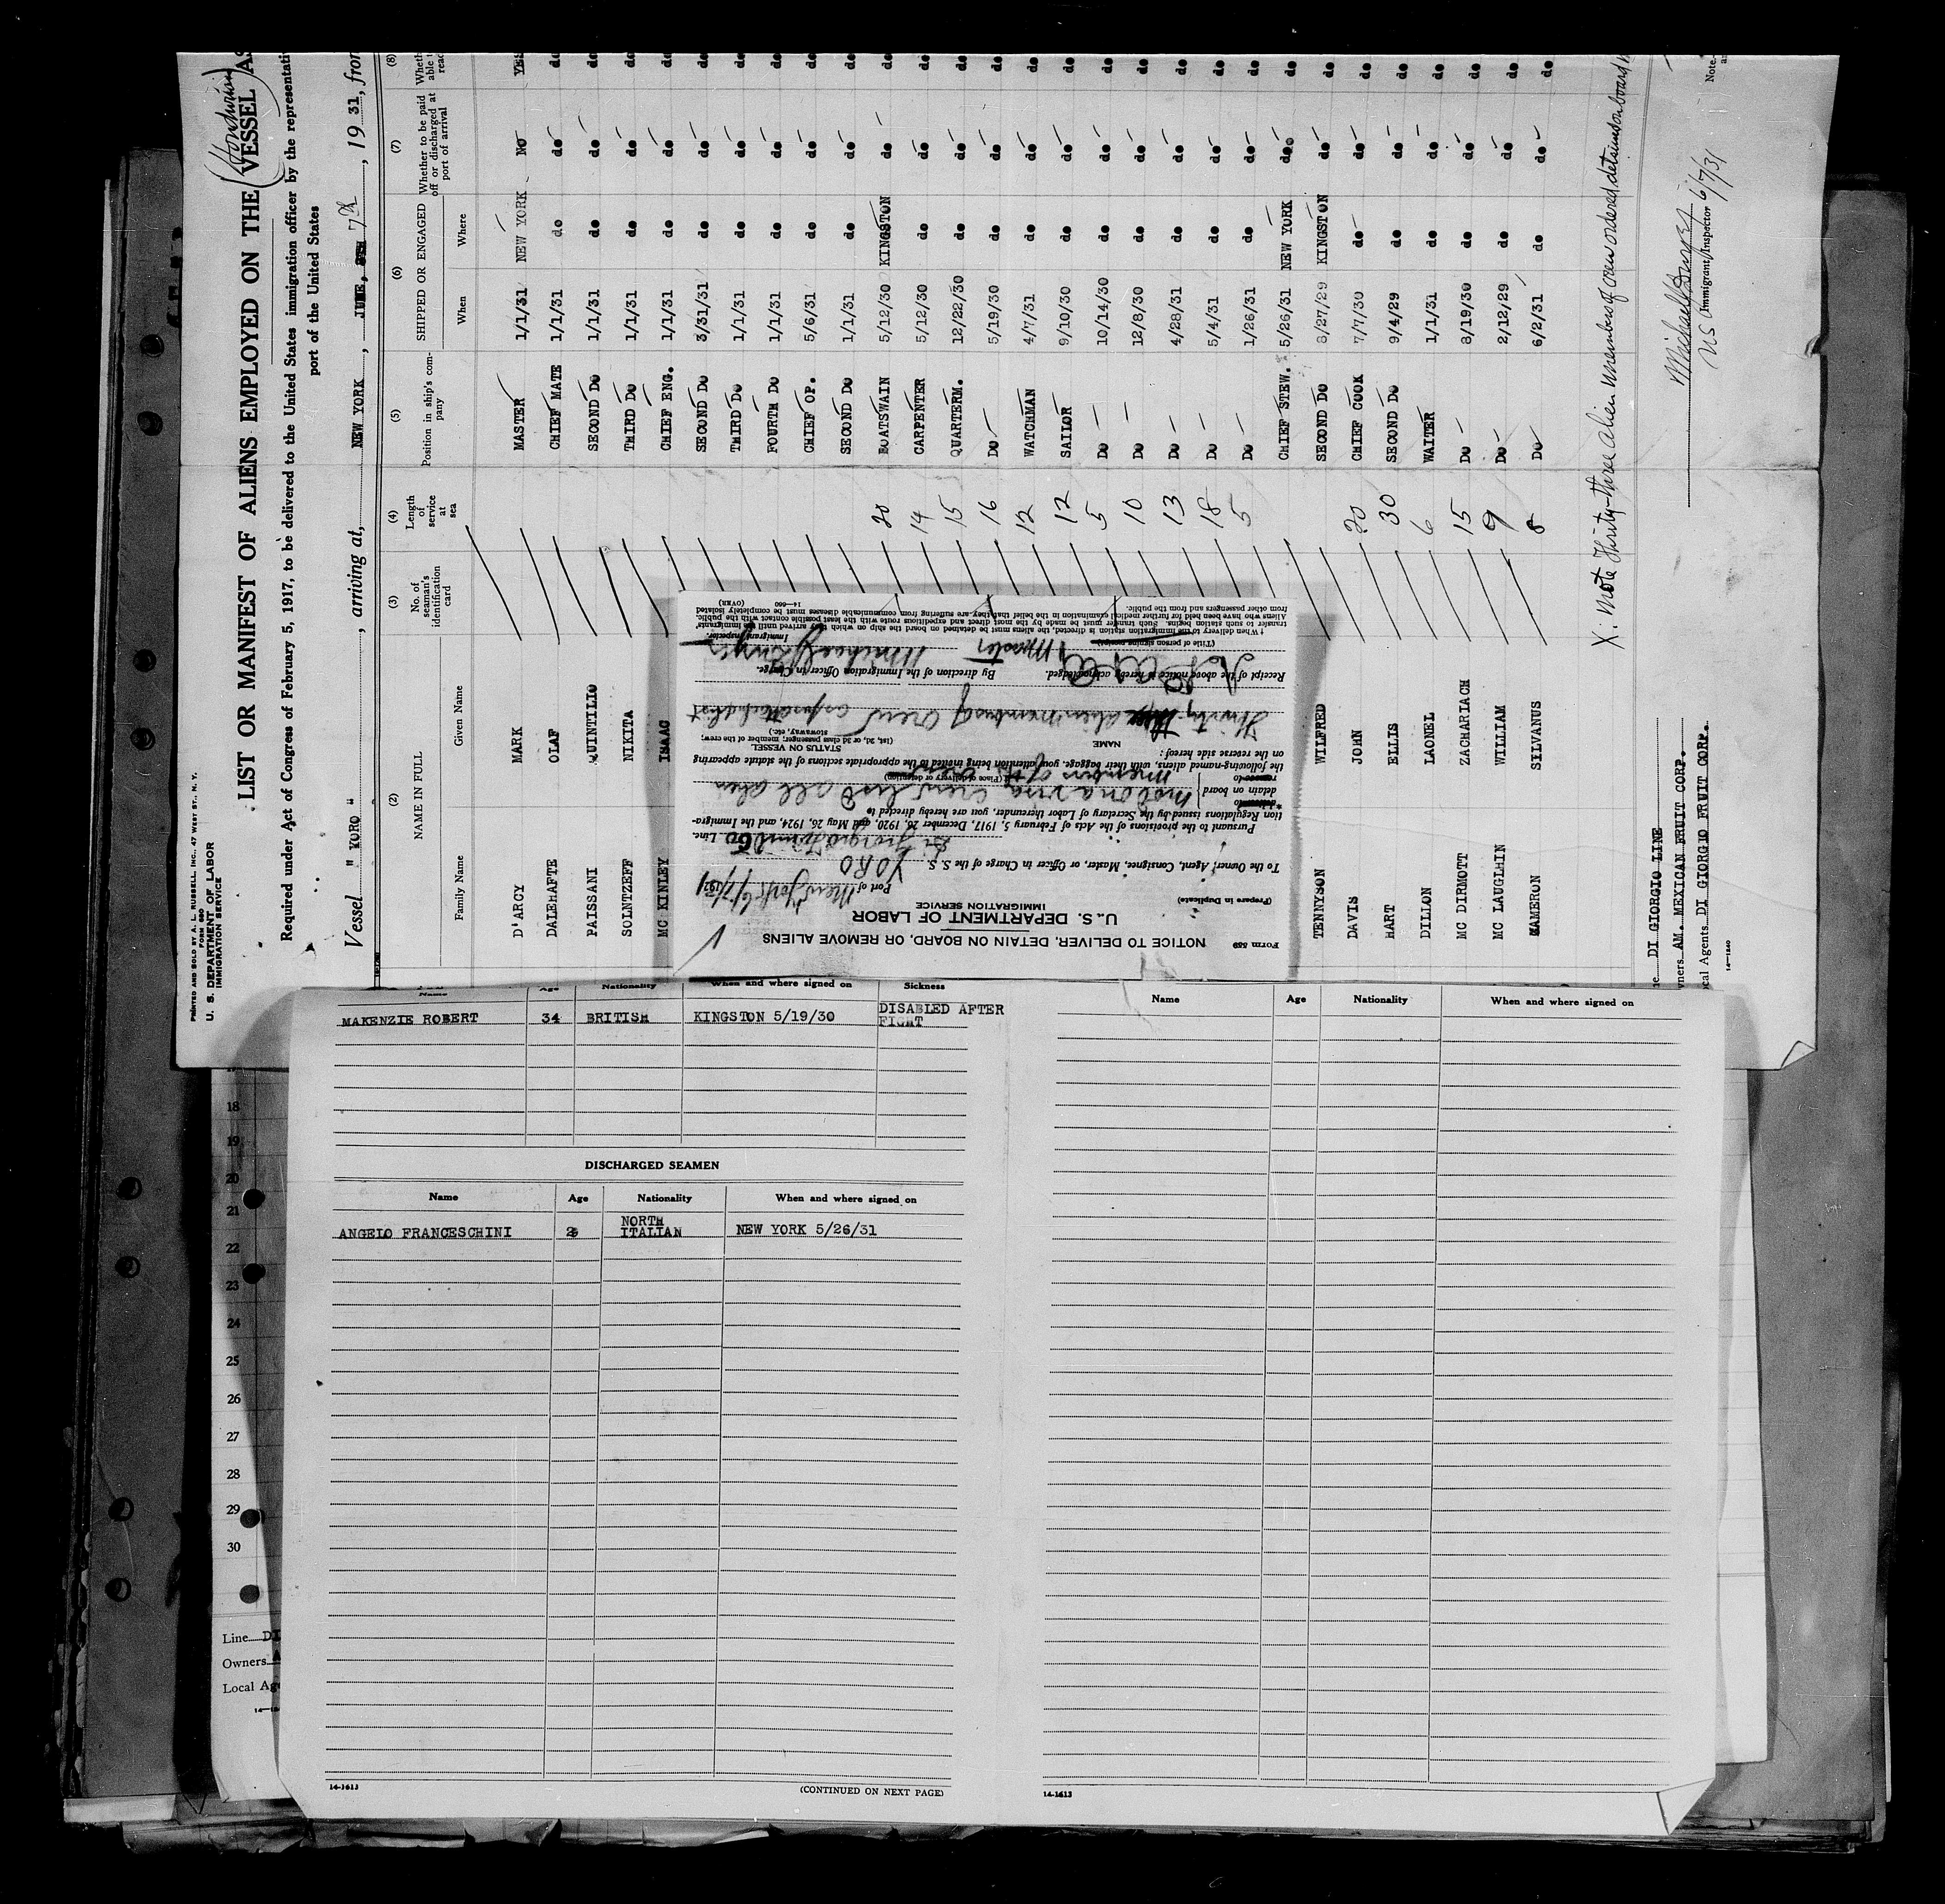 PRINTED AND SOLD BY A. L. RUSSELL, INC., 47 WEST ST., N. Y.
FORM 680
U. S. DEPARTMENT OF LABOR
IMMIGRATION SERVICE
(Honduran)
LIST OR MANIFEST OF ALIENS EMPLOYED ON THE VESSEL AS
Required under Act of Congress of February 5, 1917, to be delivered to the United States immigration officer by the representati
port of the United States
Vessel " YORO ", arriving at, NEW YORK, JUNE, 7th, 19 31, from
(2) (3) (4) (5) (6) (7) (8)
NAME IN FULL No. of seaman's identification card Length of service at sea Position in ship's company SHIPPED OR ENGAGED Whether to be paid off or discharged at port of arrival
Family Name Given Name When Where
D'ARCY MARK MASTER 1/1/31 NEW YORK No YES
DALEHAFTE OLAF CHIEF MATE 1/1/31 do do do
PAISSANI QUINTILIO SECOND Do 1/1/31 do do do
SOLNTZEFF NIKITA THIRD Do 1/1/31 do do do
MC KINLEY ISAAC CHIEF ENG. 1/1/31 do do do
SECOND Do 3/31/31 do do do
THIRD Do 1/1/31 do do do
FOURTH Do 1/1/31 do do do
CHIEF OP. 5/6/31 do do do
SECOND Do 1/1/31 do do do
20 BOATSWAIN 5/12/30 KINGSTON do do
14 CARPENTER 5/12/30 do do do
15 QUARTERM. 12/22/30 do do do
16 Do 5/19/30 do do do
12 WATCHMAN 4/7/31 do do do
12 SAILOR 9/10/30 do do do
5 Do 10/14/30 do do do
10 Do 12/8/30 do do do
13 Do 4/28/31 do do do
18 Do 5/4/31 do do do
5 Do 1/26/31 do do do
CHIEF STEW. 5/26/31 NEW YORK do do
TENNYSON WILFRED SECOND Do 8/27/29 KINGSTON do do
DAVIS JOHN 20 CHIEF COOK 7/7/30 do do do
HART ELLIS 30 SECOND Do 9/4/29 do do do
DILLON LAONEL 6 WAITER 1/1/31 do do do
MC DIRMOTT ZACHARIACH 15 Do 8/19/30 do do do
MC LAUGLHIN WILLIAM 9 Do 2/12/29 do do do
KAMERON SILVANUS 8 Do 6/2/31 do do do
X: Note Thirty-three alien members of crew ordered detained on board
DI GIORGIO LINE
AM. MEXICAN FRUIT CORP.
Local Agents DI GIORGIO FRUIT CORP.
14-1240
US Immigrant Inspector 6/7/31
Note.
Form 559
NOTICE TO DELIVER, DETAIN ON BOARD, OR REMOVE ALIENS
U. S. DEPARTMENT OF LABOR
IMMIGRATION SERVICE
(Prepare in Duplicate)
Port of New York 6/7/31
To the Owner, Agent, Consignee, Master, or Officer in Charge of the S. S. YORO
Di Giorgio Fruit Co Line.
Pursuant to the provisions of the Acts of February 5, 1917, December 26, 1920, and May 26, 1924, and the Immigra-
tion Regulations issued by the Secretary of Labor thereunder, you are hereby directed to
detain on board
crew list all alien
members of crew
(Place of delivery or detention)
the following-named aliens, with their baggage, your attention being invited to the appropriate sections of the statute appearing
on the reverse side hereof:
NAME STATUS ON VESSEL
(1st, 2d, or 3d class passenger; member of the crew; stowaway, etc.)
Thirty three alien members of crew as per attached list
Receipt of the above notice is hereby acknowledged. By direction of the Immigration Officer in Charge.
Master
(Title of person signing receipt) Immigrant Inspector.
† When delivery to the immigration station is directed, the aliens must be detained on board the ship on which they arrived until the immigrants'
transfer to such station begins. Such transfer must be made by the most direct and expeditious route with the least possible contact with the public.
Aliens who have been held for further medical examination in the belief that they are suffering from communicable diseases must be completely isolated
from other passengers and from the public.
14—660 (OVER)
Name Age Nationality When and where signed on Sickness
MAKENZIE ROBERT 34 BRITISH KINGSTON 5/19/30 DISABLED AFTER
FIGHT
DISCHARGED SEAMEN
Name Age Nationality When and where signed on
ANGELO FRANCESCHINI NORTH ITALIAN NEW YORK 5/26/31
14-1613
(CONTINUED ON NEXT PAGE)
Name Age Nationality When and where signed on
14-1613
18
19
20
21
22
23
24
25
26
27
28
29
30
Line DI
Owners A
Local Age